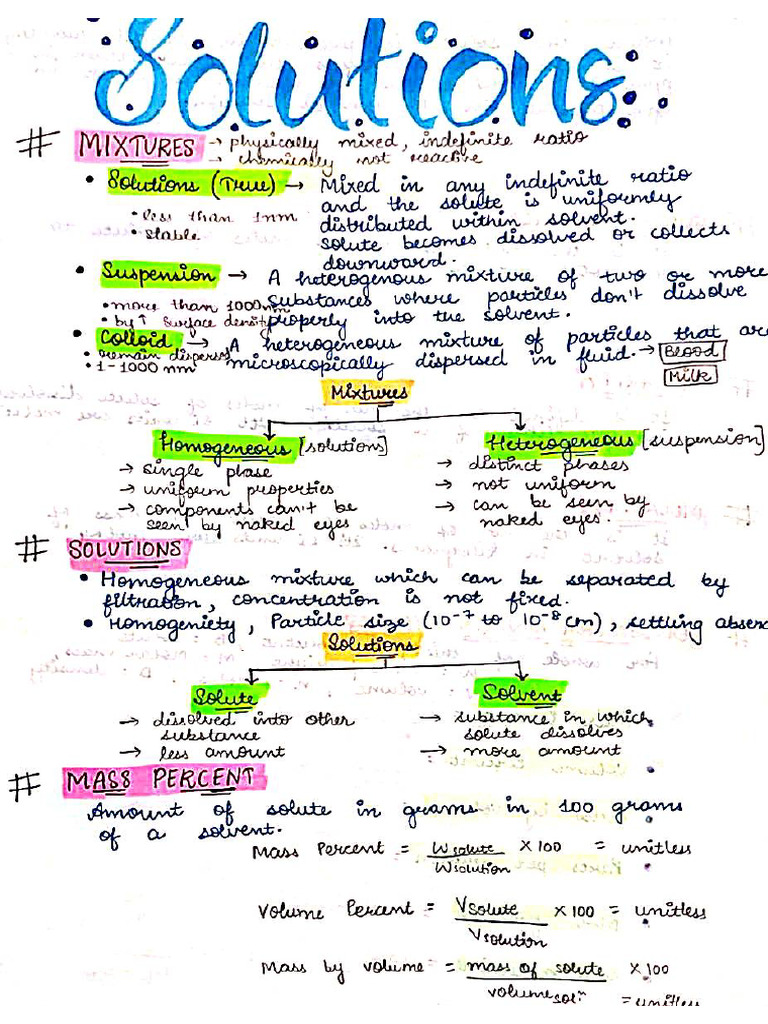 Solutions
# MIXTURES → physically mixed, indefinite ratio
→ chemically not reactive
• Solutions (True) → Mixed in any indefinite ratio
and the solute is uniformly
• less than 1nm distributed within solvent.
• stable solute becomes dissolved or collects
downward.
• Suspension → A heterogenous mixture of two or more
• more than 1000nm substances where particles don't dissolve
• by ↑ surface density properly into the solvent.
• Colloid → A heterogeneous mixture of particles that are
• remain dispersed microscopically dispersed in fluid. → Blood
• 1-1000 nm Milk
Mixtures
Homogeneous [solutions] Heterogeneous [suspension]
→ single phase → distinct phases
→ uniform properties → not uniform
→ components can't be → can be seen by
seen by naked eyes naked eyes.
# SOLUTIONS
• Homogeneous mixture which can be separated by
filtration, concentration is not fixed.
• Homogeniety, Particle size (10⁻⁷ to 10⁻⁸ cm), settling absen
Solutions
Solute Solvent
→ dissolved into other → substance in which
substance solute dissolves
→ less amount → more amount
# MASS PERCENT
Amount of solute in grams in 100 grams
of a solvent.
Mass Percent = Wsolute / Wsolution × 100 = unitless
Volume Percent = Vsolute / Vsolution × 100 = unitless
Mass by volume = mass of solute / volume solⁿ × 100
= unitless